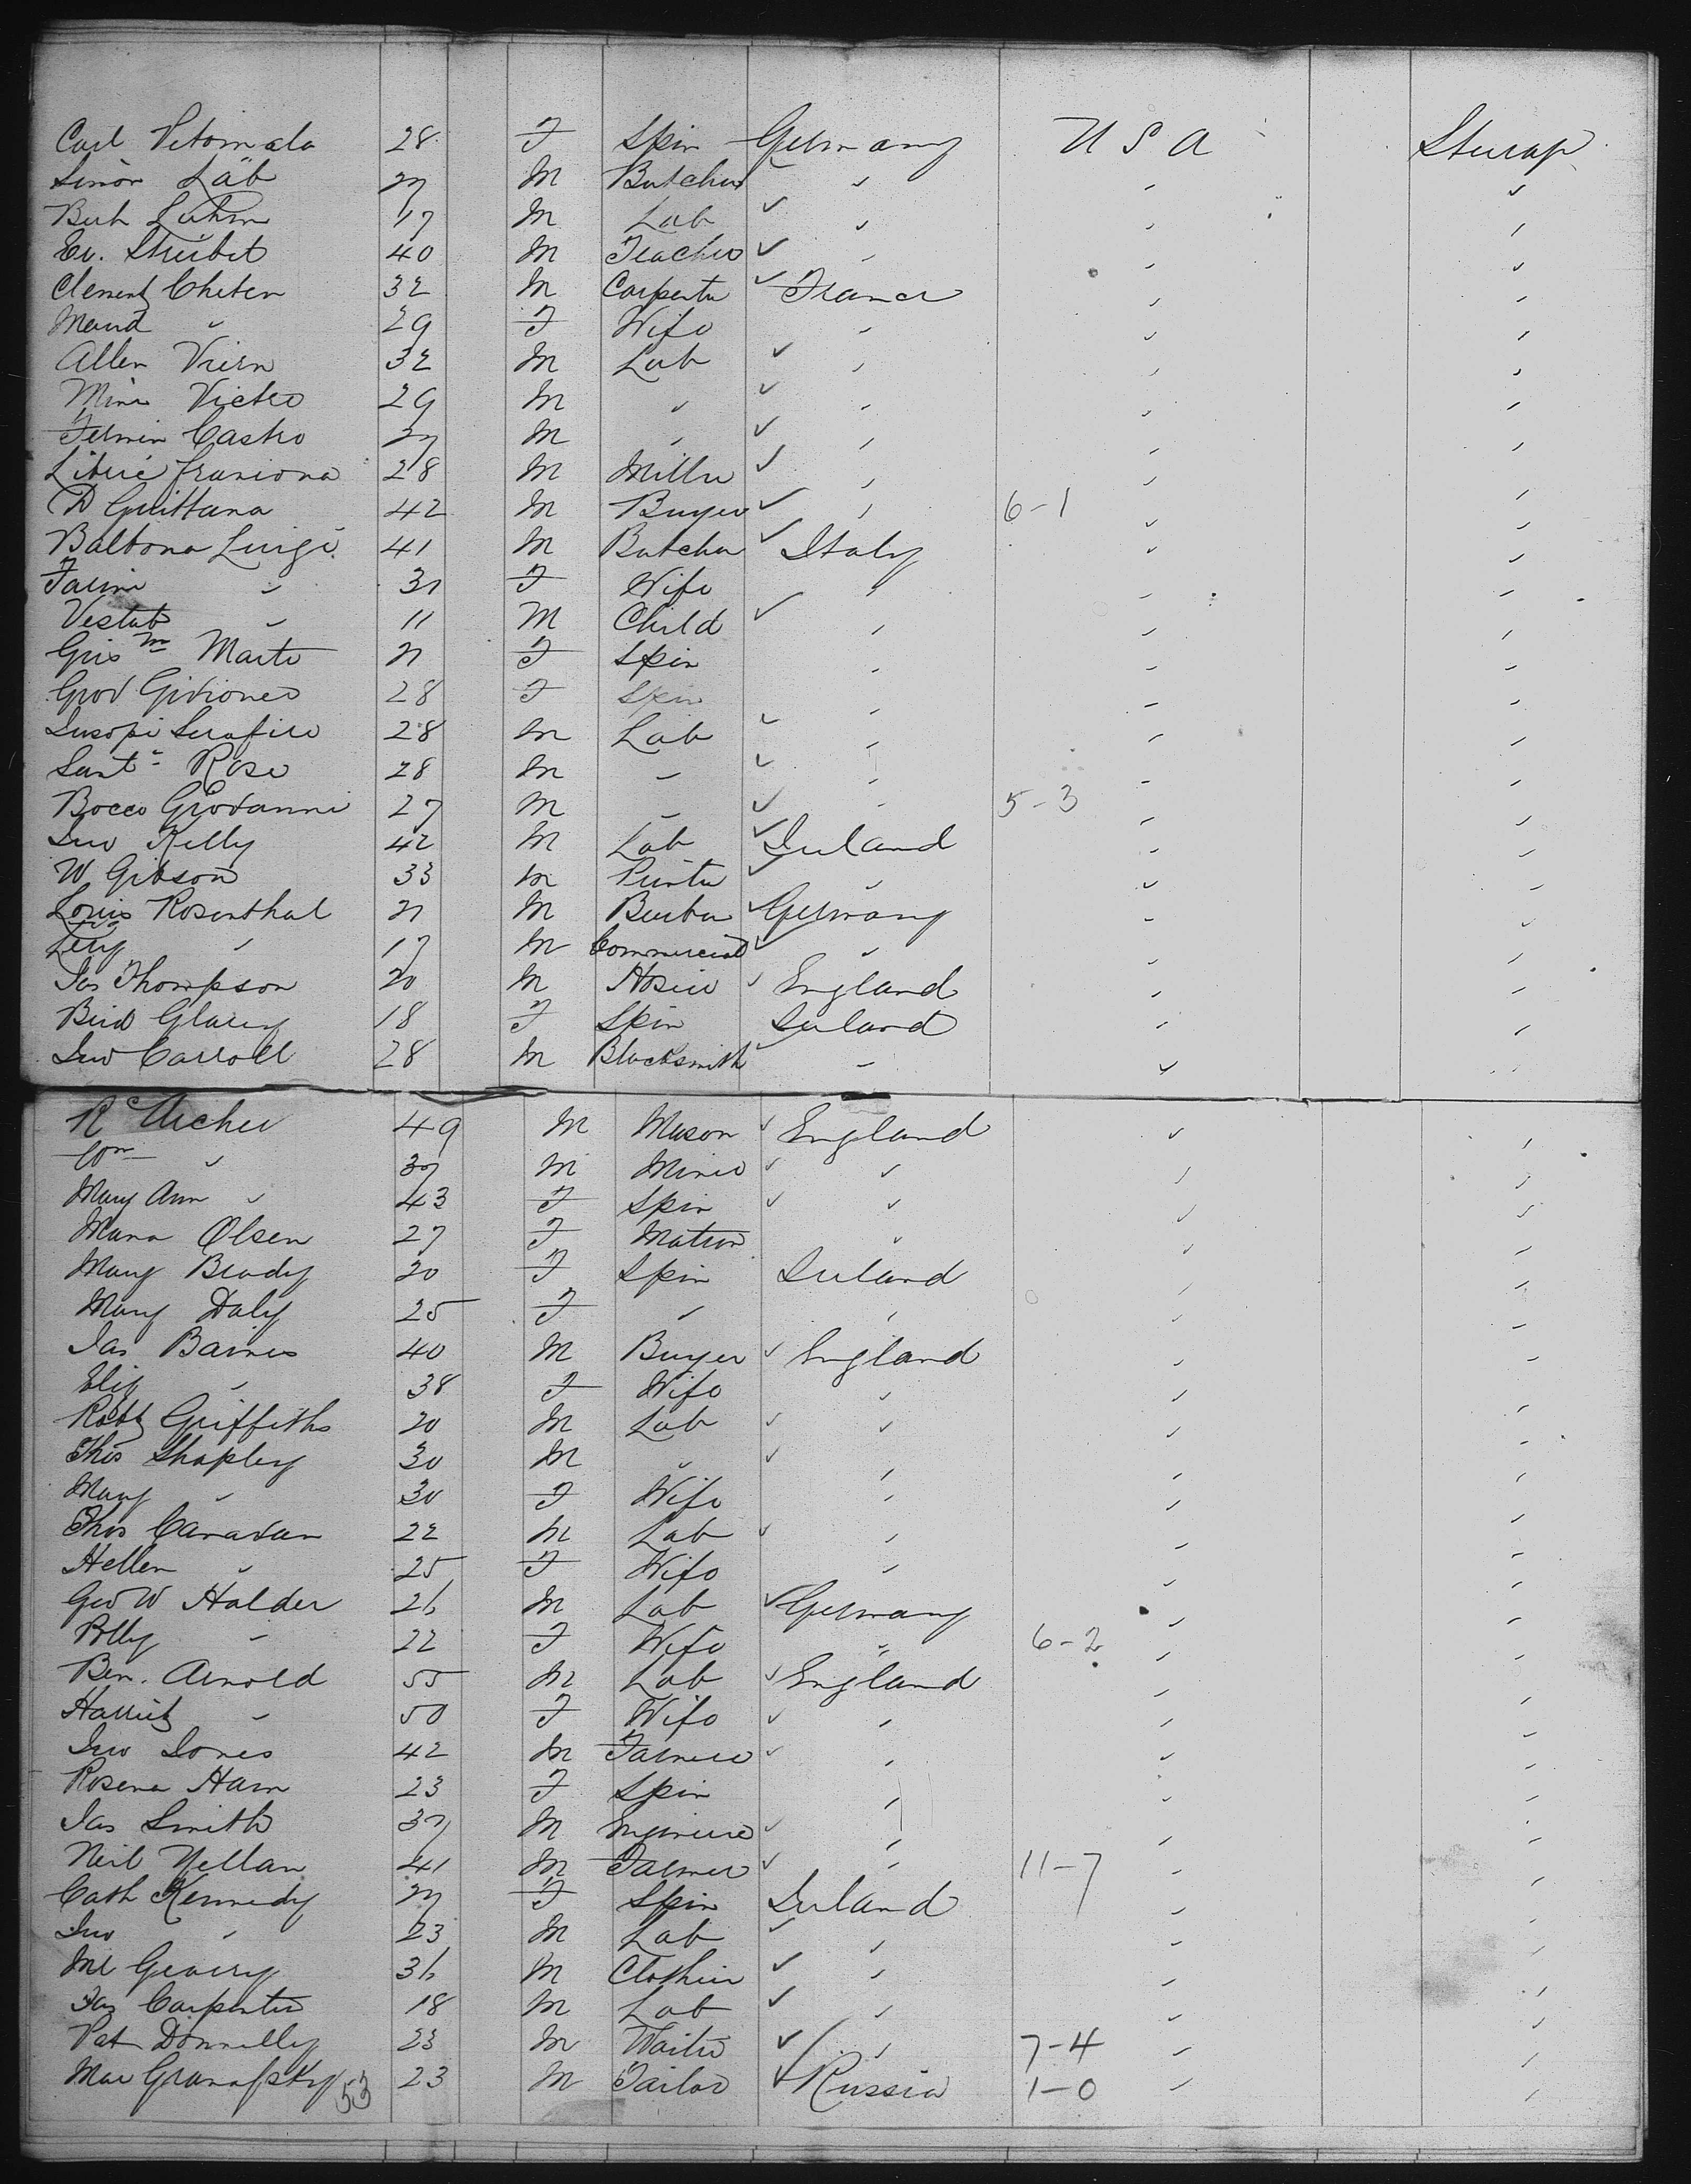 Carl Vetomala 28 F Spin Germany U S A Steerage
Simon Läb 27 M Butcher ✓ " " "
Bert Luhm 17 M Lab ✓ " " "
Ed. Streibet 40 M Teacher ✓ " " "
Clement Cheten 32 M Carpenter ✓ France " "
Maria " 29 F Wife " " "
Allen Viern 32 M Lab ✓ " " "
Mine Victro 29 M " ✓ " " "
Fermin Castro 27 M " ✓ " " "
28 M Miller ✓ " " "
D Guittana 42 M Buyer ✓ " 6-1 " "
Balbona Luigi 41 M Butcher ✓ Italy " "
" 31 F Wife " " "
" 11 M Child ✓ " " "
Marte 21 F Spin " " "
28 F Spin " " "
Serafire 28 M Lab ✓ " " "
Sant Rose 28 M " ✓ " " "
Bocco Giovanni 27 M " ✓ " 5-3 " "
Jno Kelly 42 M Lab ✓ Ireland " "
W Gibson 33 M Printer ✓ " " "
Louis Rosenthal 21 M Barber ✓ Germany " "
" 17 M Commercial ✓ " " "
Jas Thompson 20 M Hosier ✓ England " "
Bird Glacey 18 F Spin Ireland " "
Jno Carroll 28 M Blacksmith ✓ " " "
R Archer 49 M Mason ✓ England " "
Wm " 37 M Miner ✓ " " "
Mary Ann " 43 F Spin ✓ " " "
Mana Olsen 27 F Matron " " "
Mary Brady 20 F Spin Ireland " "
Mary Daly 25 F " " " "
Jas Barnes 40 M Buyer ✓ England " "
Eliz " 38 F Wife " " "
Robt Griffiths 20 M Lab ✓ " " "
Thos Shapley 30 M " ✓ " " "
Mary " 30 F Wife " " "
Thos Canavan 22 M Lab ✓ " " "
Hellen " 25 F Wife " " "
Geo W Halder 26 M Lab ✓ Germany " "
Polly " 22 F Wife " 6-2 " "
Ben. Arnold 55 M Lab ✓ England " "
Harriet " 50 F Wife ✓ " " "
Jno Jones 42 M Farmer ✓ " " "
Rosena Ham 23 F Spin " " "
Jas Smith 37 M Engineer ✓ " " "
Neil Yellan 41 M Farmer ✓ " 11-7 " "
Cath Kennedy 27 F Spin Ireland " "
Jno " 23 M Lab ✓ " " "
Ml Geaery 36 M Clothier ✓ " " "
Jas Carpenter 18 M Lab ✓ " " "
Pat Donnelly 23 M Waiter ✓ " 7-4 " "
Max Granafsky 23 M Tailor ✓ Russia 1-0 " "
53